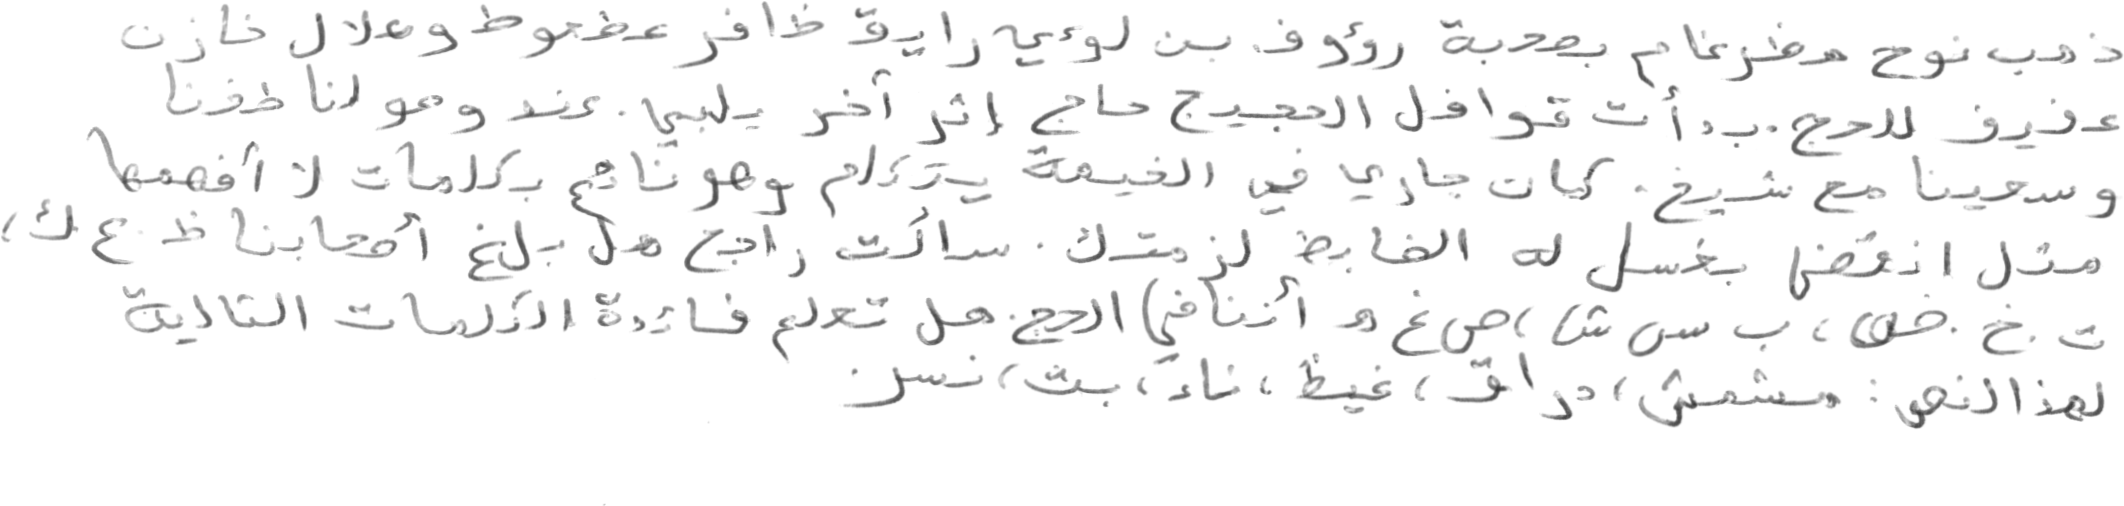 ذهب نوح مضرغام بصحبة رؤوف بن لوءي رايق ظافر عظعوط وهلال خازن
عفيف للحج. بدأت قوافل الحجيج حاج إثر آخر يلبي. عند وصولنا طفنا
وسعينا مع شيخ. كان جاري في الخيمة يتكلم وهو نائم بكلمات لا أفهمها
مثل انقضا بغسل له الضابط لزمتك. سألت راجح هل بلغ أصحابنا ظ. ع ك،
ت. خ. ض، ب س ش، ص غ ه أننا في الحج. هل تعلم فائدة الكلمات التالية
لهذا النص: مشمش، دراق، غيظ، ناء، بت، نسر.